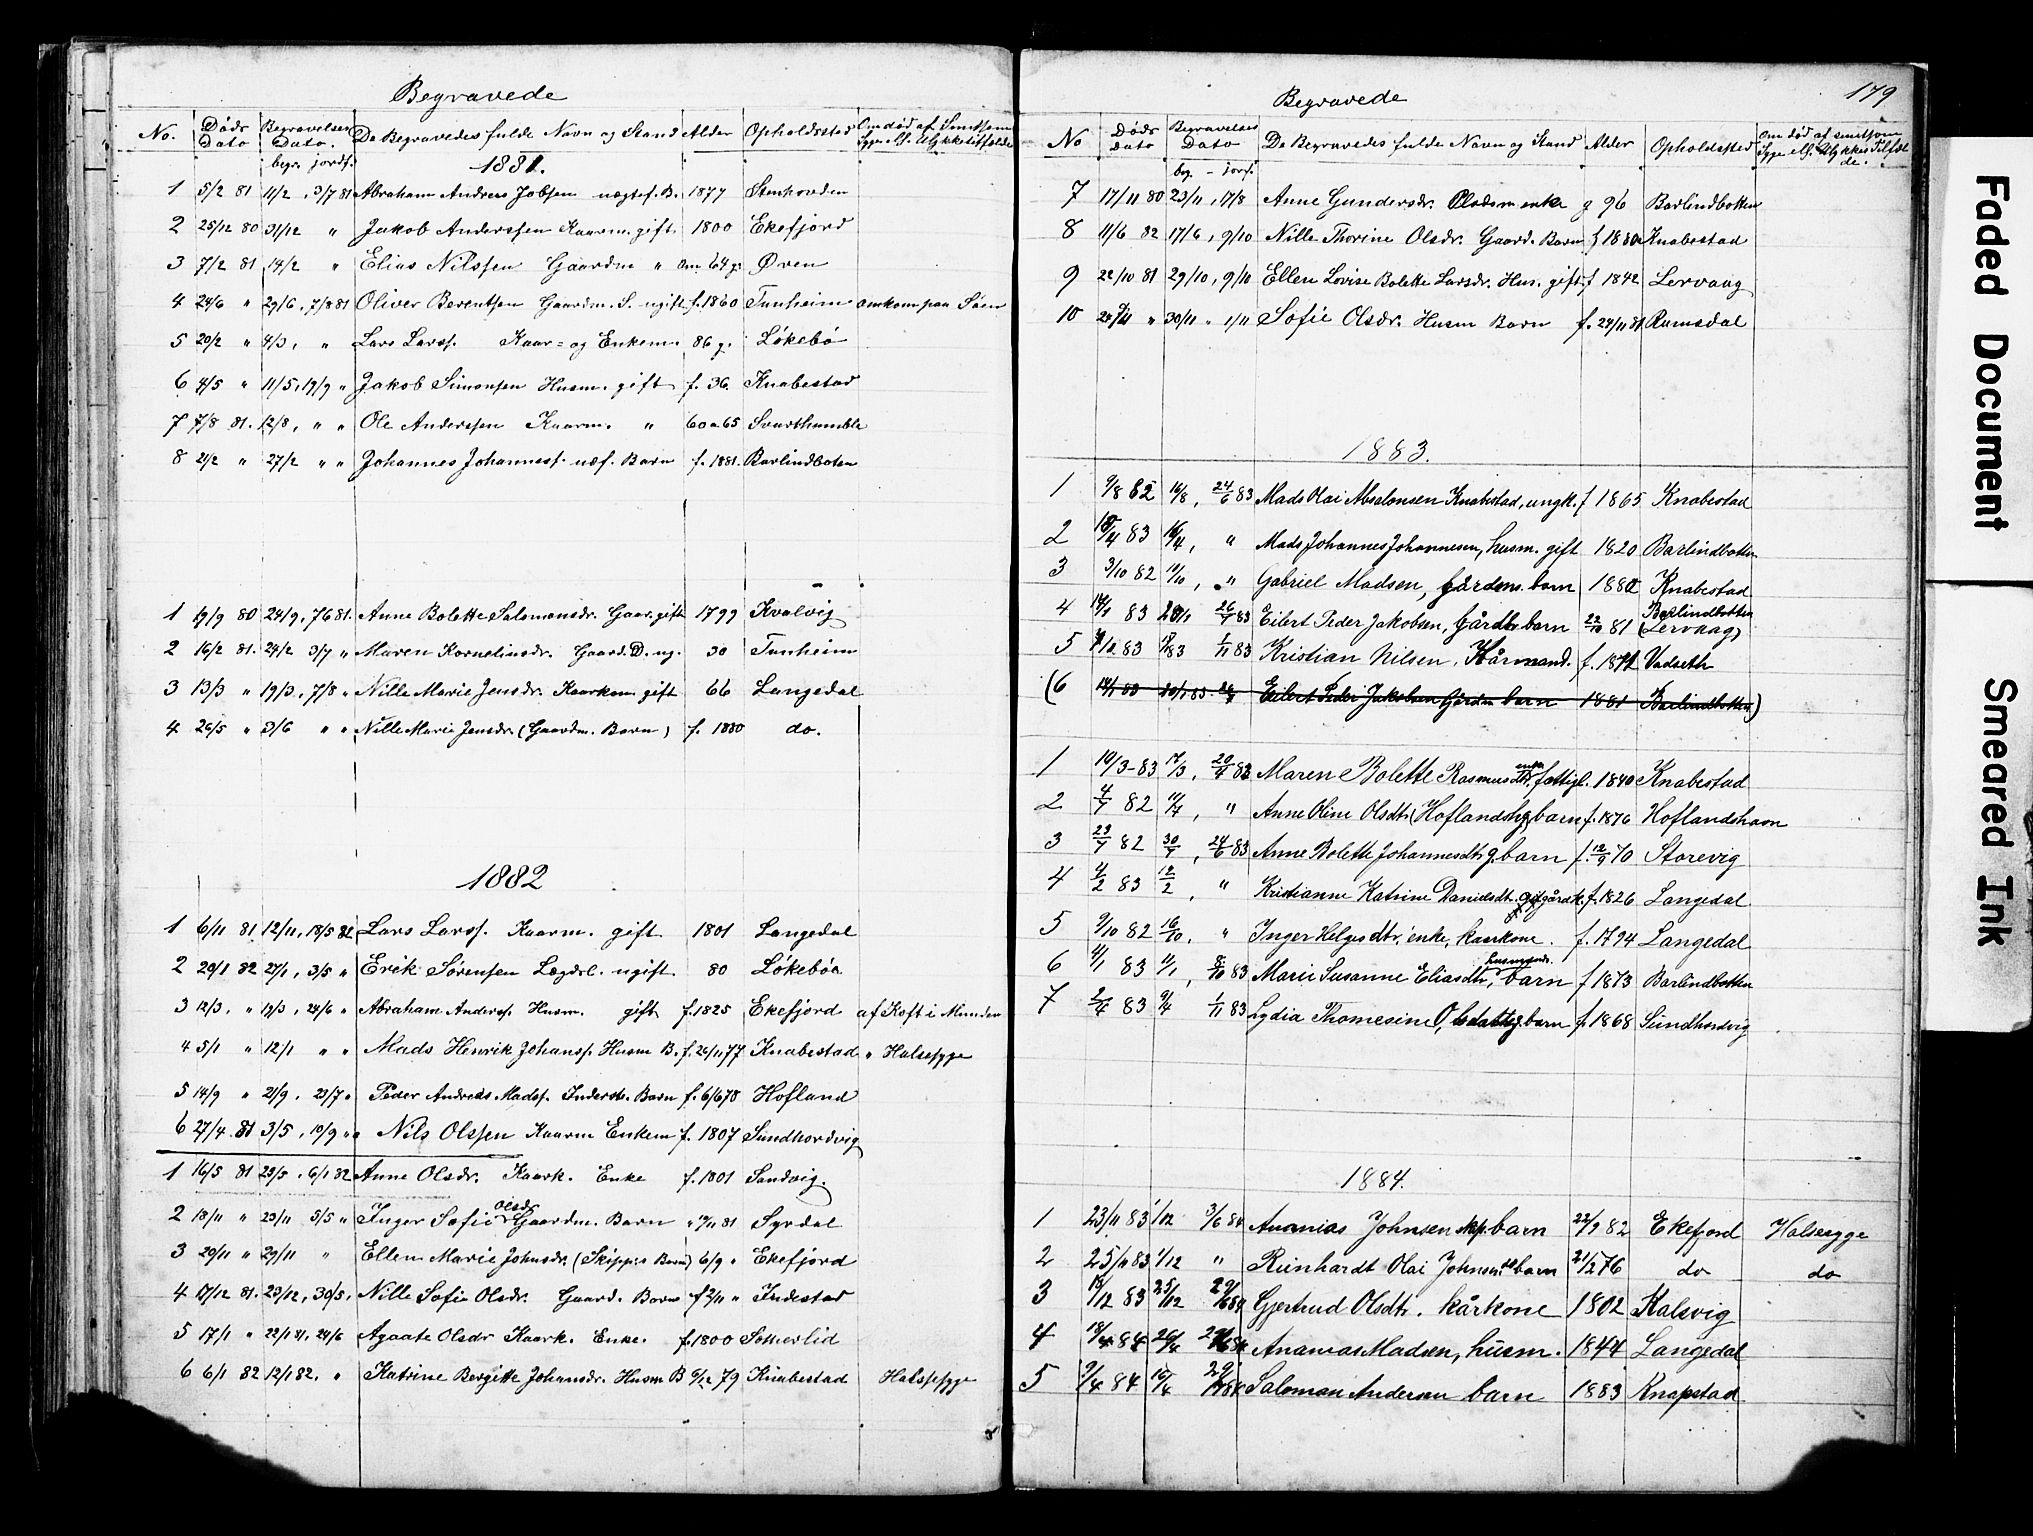 Begravede
No. Døds Dato Begravelses Dato. De Begravedes fulde Navn og Stand Alder Opholdssted Om død af Smitsom Syge elf. Ulykkestilfælde
begr. jordf.
1881.
1 5/2 81 11/2, 3/7 81 Abraham Andreas Jobsen uægtef. B. 1877
2 25/12 80 31/12 " Jakob Anderssen Kaarm. gift. 1800 Ekefjord
3 7/2 81 14/2 " Elias Nilssen Gaardm " Om. 64 g. Øven
4 24/6 " 29/6, 7/8 81 Oliver Berentsen Gaardm. S. ugift f. 1860 Tunheim omkom paa Søen
5 20/2 " 4/3, " Lars Larss. Kaar= og Enkem. 86 g. Løkebø
6 4/5 " 11/5, 19/9 " Jakob Simonsen Husm. gift f. 36 Knabestad
7 7/8 81. 12/8, " " Ole Anderssen Kaarm. " 60 a 65 Svarthumble
8 21/2 " 27/2 " " Johannes Johanness. uæf. Barn f. 1881. Barlindboten
1 19/9 80 24/9, 7/6 81. Anne Bolette Salomonsdr. Gaar. gift 1799 Kvalvig
2 16/2 81. 24/2 3/7 " Maren Kornelinsdr. Gaard. D. ug. 30 Tunheim
3 13/3 " 19/3, 7/8 " Nille Marie Jensdr. Kaarkon. gift 66 Langedal
4 26/5 " 3/6 " " Nille Marie Jensdr. (Gaardm. Barn) f. 1880 do.
1882
1 6/11 81 12/11, 18/5 82 Lars Larss. Kaarm. gift 1801 Langedal
2 20/1 82 27/1, 3/5 " Erik Sørensen Lægdsl. ugift 80 Løkebøe
3 12/3, " 19/3, 24/6 " Abraham Anderss. Husm. gift f. 1825 Ekefjord af Koft i Munden
4 5/1 " 12/1 " " Mads Henrik Johanss. Husm B. f. 26/11 77 Knabestad " Halssyge
5 14/9 " 21/9, 23/7 " Peder Andreas Madss. Inderst. Barn f. 6/6 78 Hofland
6 27/4 81 3/5, 10/9 " Nils Olssen Kaarm Enkem f. 1807 Sundhordvig
1 16/5 81 23/5, 6/1 82 Anne Olsdr. Kaark. Enke f. 1801 Sandvig.
2 18/11 " 23/11 5/5 " Inger Sofie Olsdr Gaardm. Barn " 19/11 81 Syrdal
3 20/11 " 29/11 " Ellen Marie Johnsdr. (Skippers Barn) 6/9 " Ekefjord
4 17/12 81. 23/12, 30/5, Nille Sofie Olsdr. Gaard. Barn f 2/11 " Indestad
5 17/1 " 22/1 81, 24/6 Agaate Olsdr Kaark. Enke. f. 1800
6 6/1 82 12/1 82, " Katrine Bergitte Johansdr. Husm B 9/12 79 Knabestad Halssyge
179
Begravede
No Døds dato Begravelses Dato De Begravedes fulde Navn og Stand Alder Opholdssted Om død af smitsom Syge elf. Ulykkes Tilfælde.
beg. - jorf.
7 17/11 80 23/11, 17/8 Anne Gundersdr. enke g 96 Barlindbotten
8 11/6 82 17/6, 9/10 Nille Thorine Olsdr. Gaard. Barn f 1880 Knabestad
9 22/10 81 29/10, 9/10 Ellen Lovise Bolette Larsdr. Hus. gift f 1842 Lervaag
10 " 30/11 " 1/11 Sofie Olsdr. Husm Barn f. 24/11 81 Rumsdal
1883.
1 9/8 82 16/8, 24/6 83 Mads Olai Absalonsen Knabestad, ungk. f 1865 Knabestad
2 10/4 83 16/4, " Mads Johannes Johannesen, husm. gift 1820 Barlindbotten
3 3/10 82 11/10, " Gabriel Madsen, gårdms. barn 1882 Knabestad
4 14/1 83 20/1 26/7 83 Eilert Peder Jakobsen, gårdbr. barn 22/10 81 Barlindbotten (Lervaag)
5 83 83 1/11 83 Kristian Nilsen, Kårmand. f. 1871 Vadseth
(6 14/1 83 20/1 83. Eilert Peder Jakobsen Gårdm barn 1881 Barlindbotten)
1 10/3-83 17/3, 20/4 83 Maren Bolette Rasmusdtr. enke fattigl. 1840 Knabestad
2 4/7 82 11/7, " Anne Oline Olsdtr (Hoflandsh) barn f. 1876 Hoflandsham
3 23/7 82 30/7, 24/6 83 Anne Bolette Johannesdtr g. barn f. 12/9 70 Storevig
4 4/2 83 12/2, " Kristianne Katrine Danielsdt. gårdk. f. 1826 Langedal
5 9/10 82 16/10, " Inger Helgesdtr, enke, kaarkone. f. 1794 Langedal
6 4/1 83 11/1, 8/10 83 Marie Susanne Eliasdtr, husmands. barn f 1873 Barlindbotten
7 2/4 83 9/4 1/11 83 Lydia Thomesine Olsdatter barn f. 1868 Sundhordvig
1884.
1 23/11 83 1/12 3/6 84 Ananias Johnsen skp. barn 22/9 82 Ekefjord Halssyge
2 25/11 83 1/12 " Reinhardt Olai Johnsen barn 21/2 76 do do
3 18/12 83 25/12 29/6 84 Gjertrud Olsdtr. kårkone 1802 Kalsvig
4 18/4 84 26/4 Ananias Madsen, husm. 1844 Langedal
5 9/4 84 16/4 Saloman Andersen barn 1883 Knapstad
Faded Document
Smeared Ink